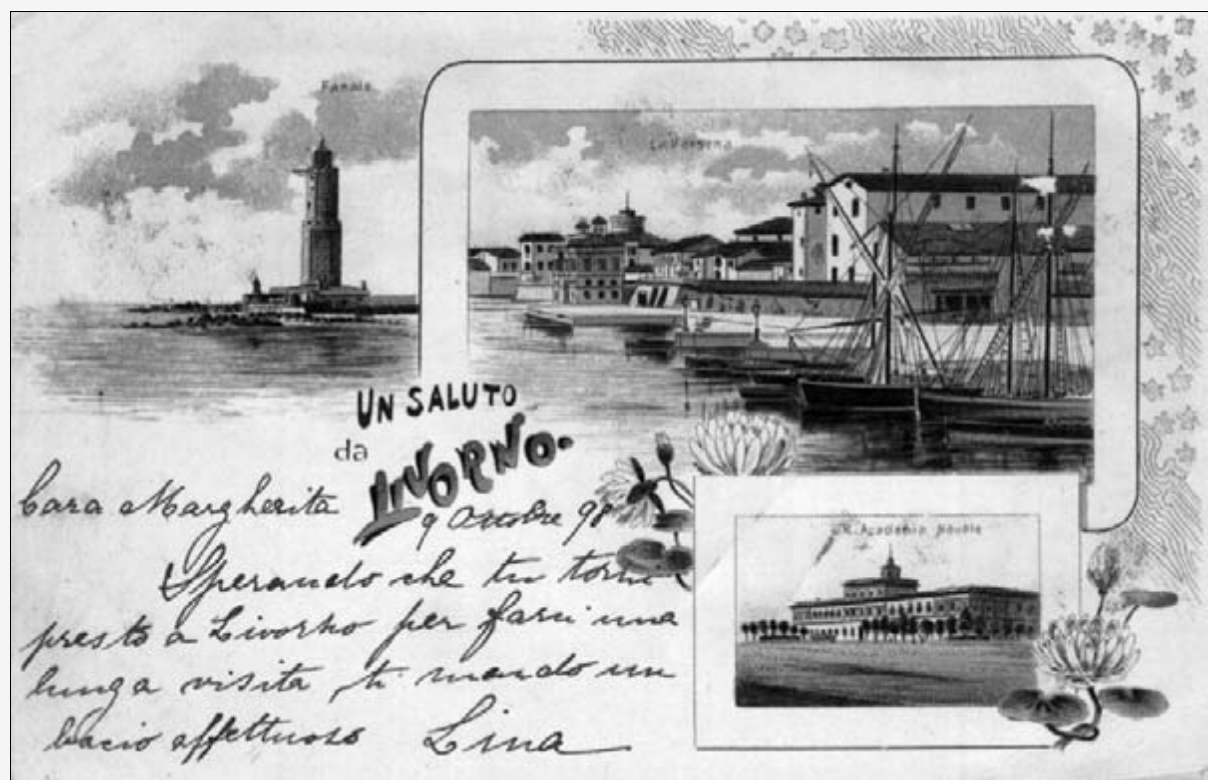 Fanale
La Darsena
UN SALUTO
da LIVORNO
R. Accademia Navale
Cara Margherita
9 Ottobre 98
Sperando che tu torni
presto a Livorno per farci una
lunga visita, ti mando un
bacio affettuoso Lina